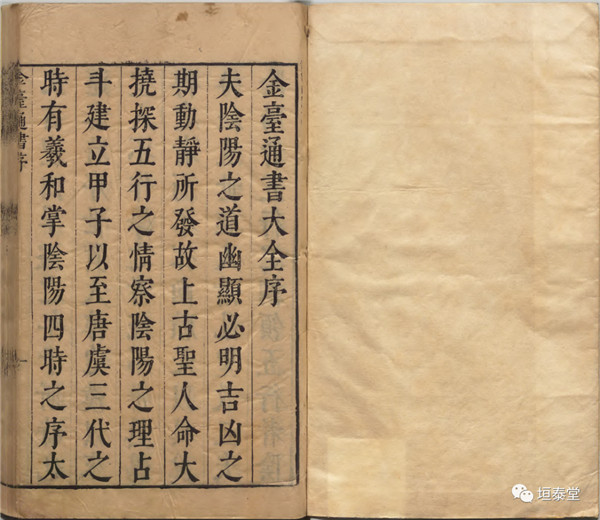 金臺通書大全序
夫陰陽之道幽顯必明吉凶之
期動靜所發故上古聖人命大
撓探五行之情察陰陽之理占
斗建立甲子以至唐虞三代之
時有羲和掌陰陽四時之序太
金臺通書序
一
垣泰堂